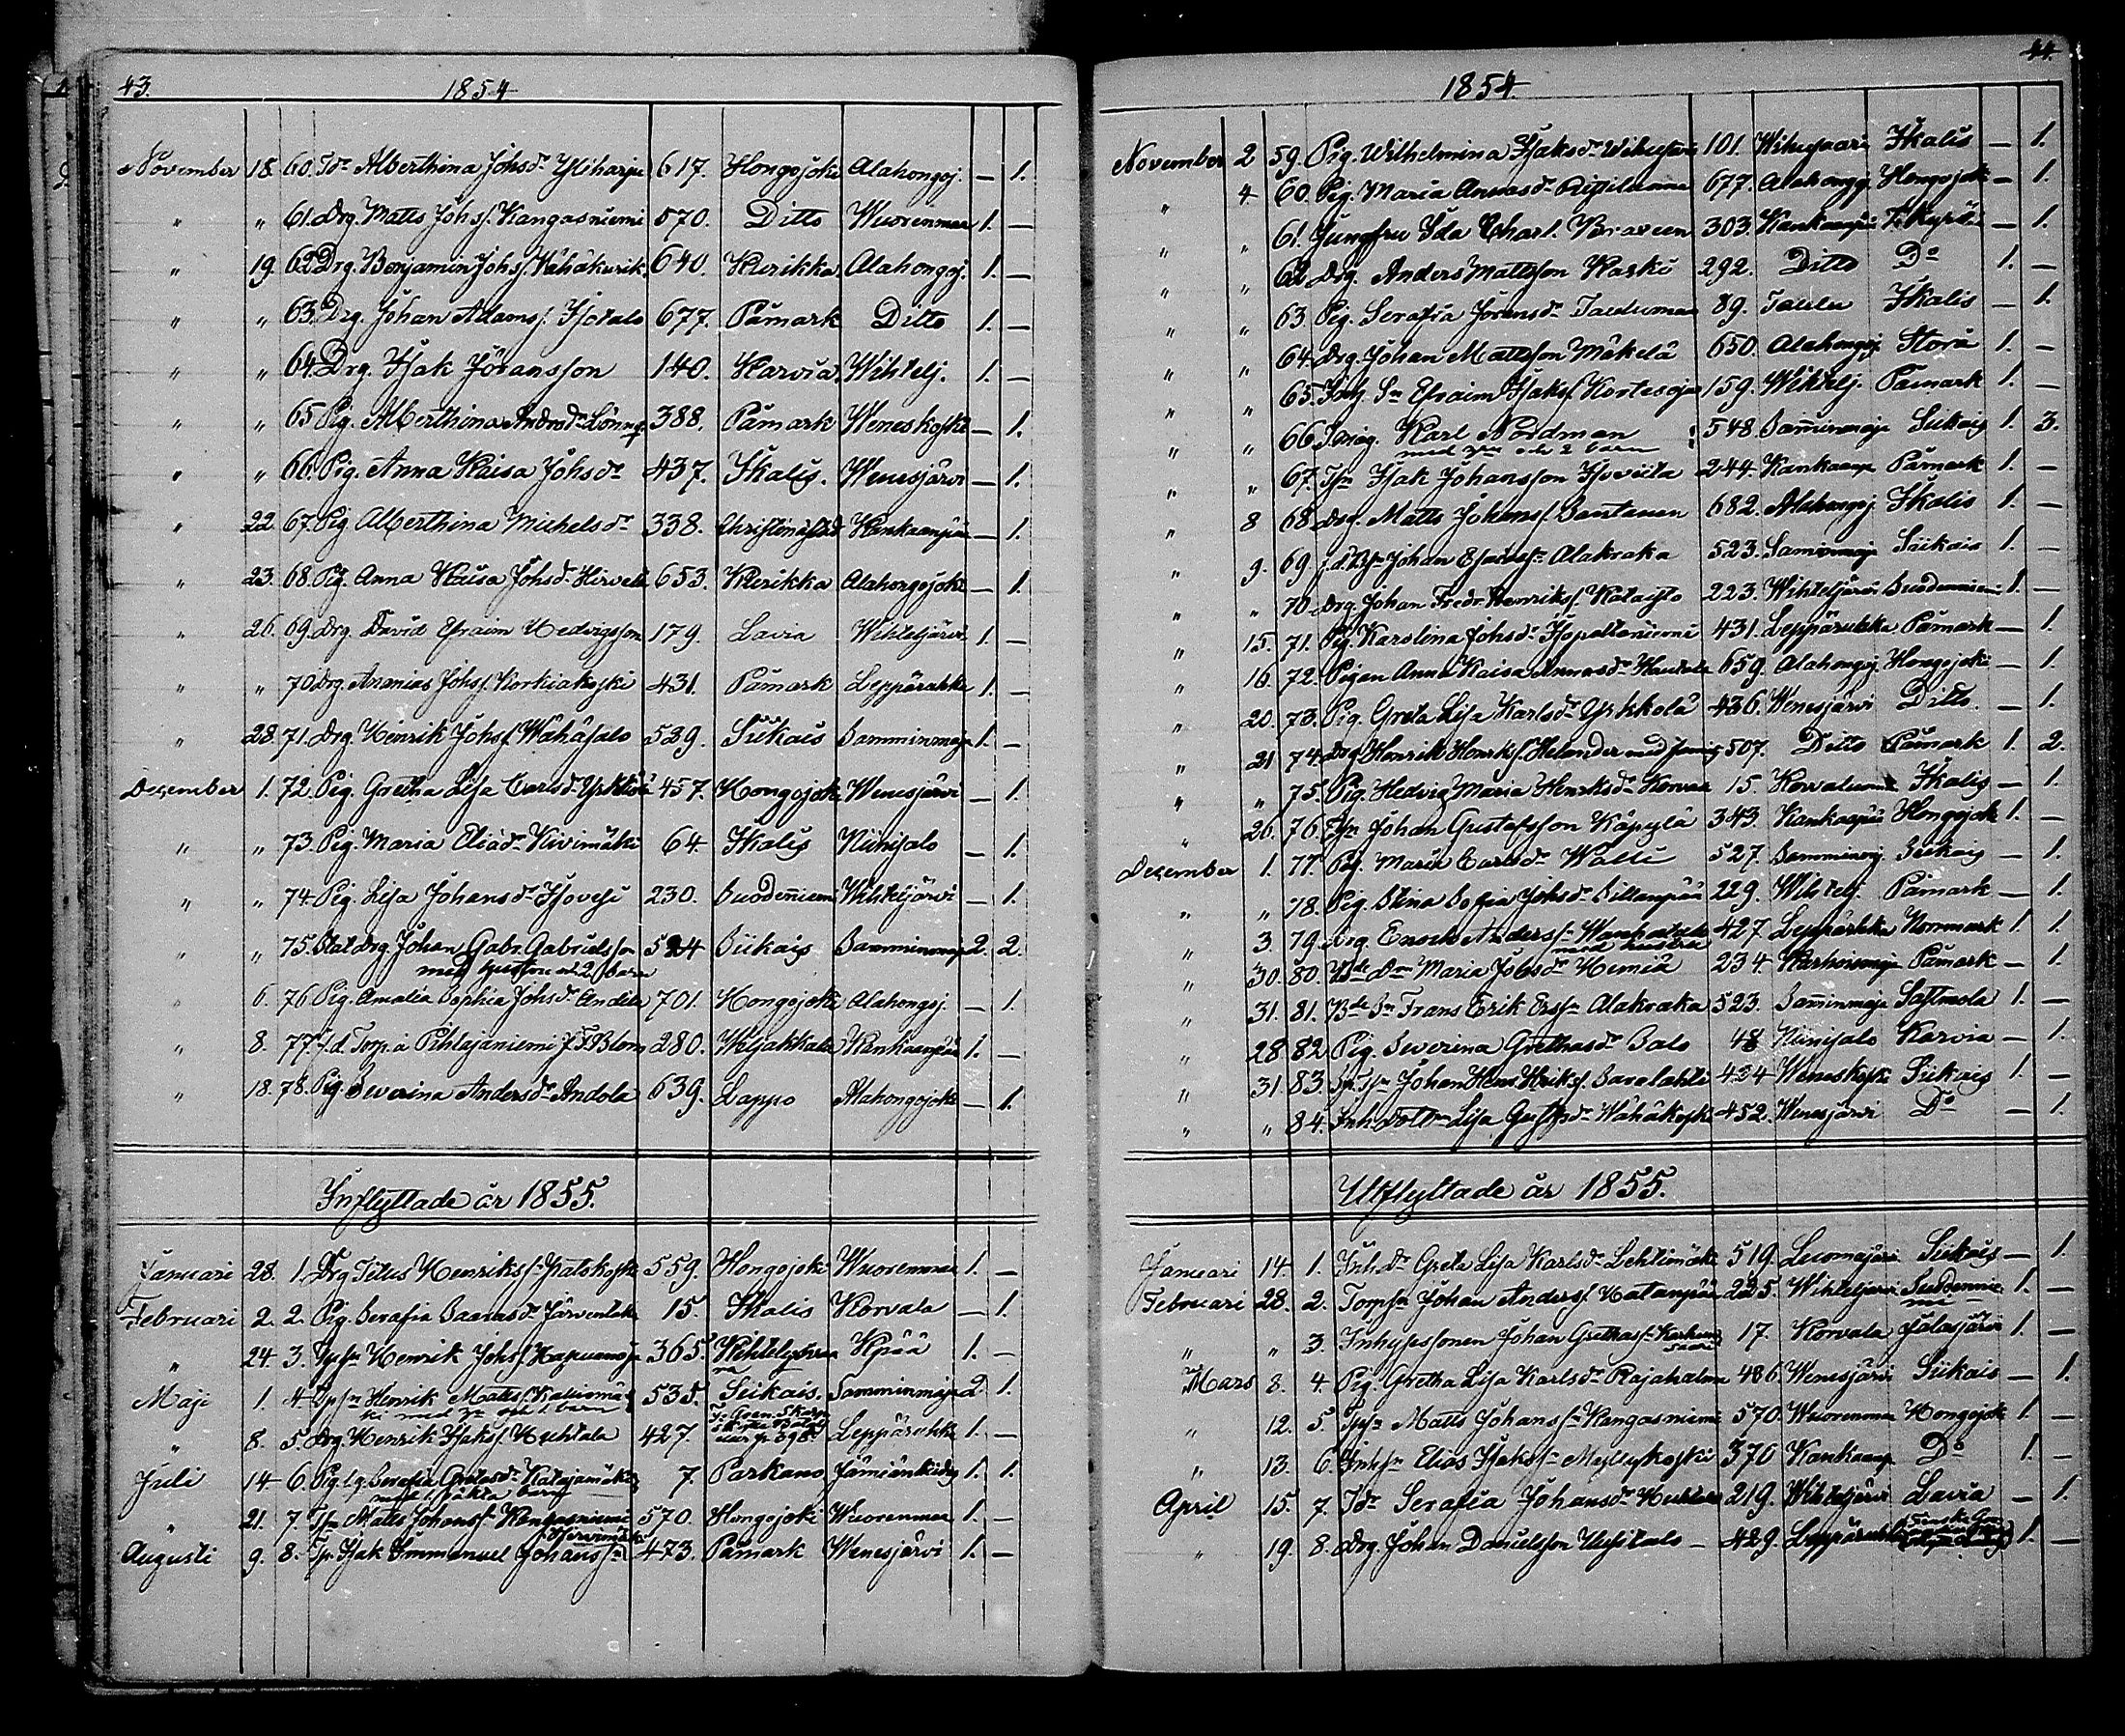 43.
1854
November 18. 60. Tdr Alberthina Johsdr Yliharju 617. Hongojoki Alahongoj. — 1.
" " 61. Drg. Matts Johss. Kangasniemi 570. Ditto Wuorenmaa 1. —
" 19. 62. Drg. Benjamin Johss. Wähäkurik. 640. Kurikka Alahongoj. 1. —
" " 63. Drg. Johan Adamss. Isotalo 677. Påmark Ditto 1. —
" " 64. Drg. Isak Göransson 140. Karvia. Wihtelj. 1. —
" " 65. Pig. Alberthina Andrsdr Lönnq. 388. Påmark Weneskoski — 1.
" " 66. Pig. Anna Kaisa Johsdr 437. Ikalis. Wenesjärvi — 1.
" 22. 67. Pig. Alberthina Michelsdr 338. Christinæstad Kankaanpää — 1.
" 23. 68. Pig. Anna Kaisa Johsdr Hirvelä 653. Kurikka Alahongojoki — 1.
" 26. 69. Drg. David Efraim Hedvigsson 179. Lavia Wihteljärvi 1. —
" " 70. Drg. Ananias Johss. Korkiakoski 431. Påmark Leppärukka 1. —
" 28. 71. Drg. Henrik Johss. Wähäsalo 529. Siikais Samminmaja 1. —
December 1. 72. Pig. Gretha Lisa Carlsdr Yrkkölä 457. Hongojoki Wenesjärvi — 1.
" " 73. Pig. Maria Eliædr Kivimäki 64. Ikalis Niinisalo — 1.
" " 74. Pig. Lisa Johansdr Isovesi 230. Suodenniemi Wihteljärvi — 1.
" " 75. Stat drg. Johan Gabr. Gabrielsson 524 Siikais Samminmaja 2. 2.
med hustru och 2 barn
" 6. 76. Pig. Amalia Sophia Johsdr Andila 701. Hongojoki Alahongoj. — 1.
" 8. 77. f.d. Torp. a Pihlajaniemi J. F. Blom 280. Wiljakkala Kankaanpää 1. —
" 18. 78. Pig. Severina Andersdr Andola 639. Lappo Alahongojoki — 1.
Inflyttade år 1855.
Januari 28. 1. Drg Titus Henrikss. Patokoski 559. Hongojoki Wuorenmaa 1. —
Februari 2. 2. Pig. Serafia Saarasdr Järventaka 15. Ikalis Korvala — 1.
" 24. 3. Tpsn Henrik Johss. Hapuanoja 365. Wihteljärvi Kyrä 1. —
Maji 1. 4. Tpsn Henrik Mattss. Kalliomä- 535. Siikais. Samminmaja 2 1.
ki med hu och 1 barn
" 8. 5. Drg. Henrik Isakss. Huhtala 427. Leppärukka 1. —
Juli 14. 6. Pig. lg. Serafia Gretasdr Katajamäki 7. Parkano Jämiänkeidas 1. 1.
med 1 oäkta barn
" 21. 7. Tsn Matts Johanss. Kangasniemi 570. Hongojoki Wuorenmaa 1. —
Augusti 9. 8. Isak Emmanuel Johanssn 473. Påmark Wenesjärvi 1. —
44.
1854
November 2 59. Pig. Wilhelmina Isaksdr Wihusaari 101. Wihusaari Ikalis — 1.
" 4 60. Pig. Maria Annasdr 677. Alahongoj. Hongojoki — 1.
" " 61. Jungfru Ida Charl. Braxeen 303. Kankaanpää — 1.
" " 62. Drg. Anders Mattsson Kaski 292. Ditto Do 1. —
" " 63. Pig. Serafia Göransdr Tauluma 89. Taulu Ikalis — 1.
" " 64. Drg. Johan Mattsson Mäkelä 650. Alahongoj Storå 1. —
" " 65. Inh. Sn Efraim Isakss. Kortesoja 159. Wihtelj. Påmark 1. —
" " 66. Karl Nordman 548. Samminmaja Siikais 1. 3.
med hu och 2 barn
" " 67. Tsn Isak Johansson Isoviita 244. Kankaanp. Påmark 1. —
" 8 68. Drg. Matts Johanss. Santanen 682. Alahongoj. Ikalis 1. —
" 9. 69. Johan Alakraka 523. Samminmaja Siikais 1. —
" " 70. Drg. Johan Fredr. Henrikss. Kataisto 223. Wihteljärvi Suodenniemi 1. —
" 15. 71. Pig. Karolina Johsdr 431. Leppärukka Påmark — 1.
" 16. 72. Pigan Anna Kaisa Annasdr Hautala 659. Alahongoj. Hongojoki — 1.
" 20. 73. Pig. Greta Lisa Karlsdr Yrkkölä 436. Wenesjärvi Ditto. — 1.
" 21 74. Drg Henrik Henrkss. Helander med familj 507. Ditto Påmark 1. 2.
" " 75. Pig. Hedvig Maria Henrksdr Korvala 15. Ikalis — 1.
" 26. 76. Tsn Johan Gustafsson Käpylä 343. Kankaanpää Hongojok 1. —
December 1. 77. Pig. Maria Carlsdr Walli 527. Samminmj. Siikais — 1.
" " 78. Pig. Stina Sofia Johsdr Sillanpää 229. Wihtelj. Påmark — 1.
" 3. 79. Drg. Enoch Anderss. 427. Leppärukka Norrmark 1. 1.
med hustru
" 30. 80. Maria Johsdr Hemiä 234. Påmark — 1.
" 31. 81. Bde Sn Frans Erik Erssn Alakraka 523. Samminmaja Sastmola 1. —
" 28 82. Pig. Severina Grethasdr Salo 48 Niinisalo Karvia — 1.
" 31. 83. Johan Henr. Hnrikss. Savalahti 434 Weneskoski Siikais 1. —
" " 84. Inh. dottr Lisa Gustfsdr Wähäkoski 452. Wenesjärvi Do — 1.
Utflyttade år 1855.
Januari 14. 1. Inh. dr Greta Lisa Karlsdr Lehtimäki 519. Luomajärvi Siikais — 1.
Februari 28. 2. Torpsn Johan Anderss. Katanpää 225. Wihteljärvi Suodennie- 1. —
mi
" " 3. Inhysessonen Johan Grethass. 17. Korvala Jalasjärvi 1. —
Mars 8. 4. Pig. Gretha Lisa Karlsdr Rajahalme 486. Wenesjärvi Siikais — 1.
" 12. 5. Tpsn Matts Johanssn Kangasniemi 570. Wuorenmaa Hongojok 1. —
" 13. 6. Inhsn Elias Isakssn Myllykoski 370 Kankaanp Do 1. —
April 15. 7. Tdr Serafia Johansdr Huhtala 219. Wihteljärvi Lavia — 1.
" 19. 8. Drg. Johan Danielsson Uusitalo — 429. Leppärukka 1. —